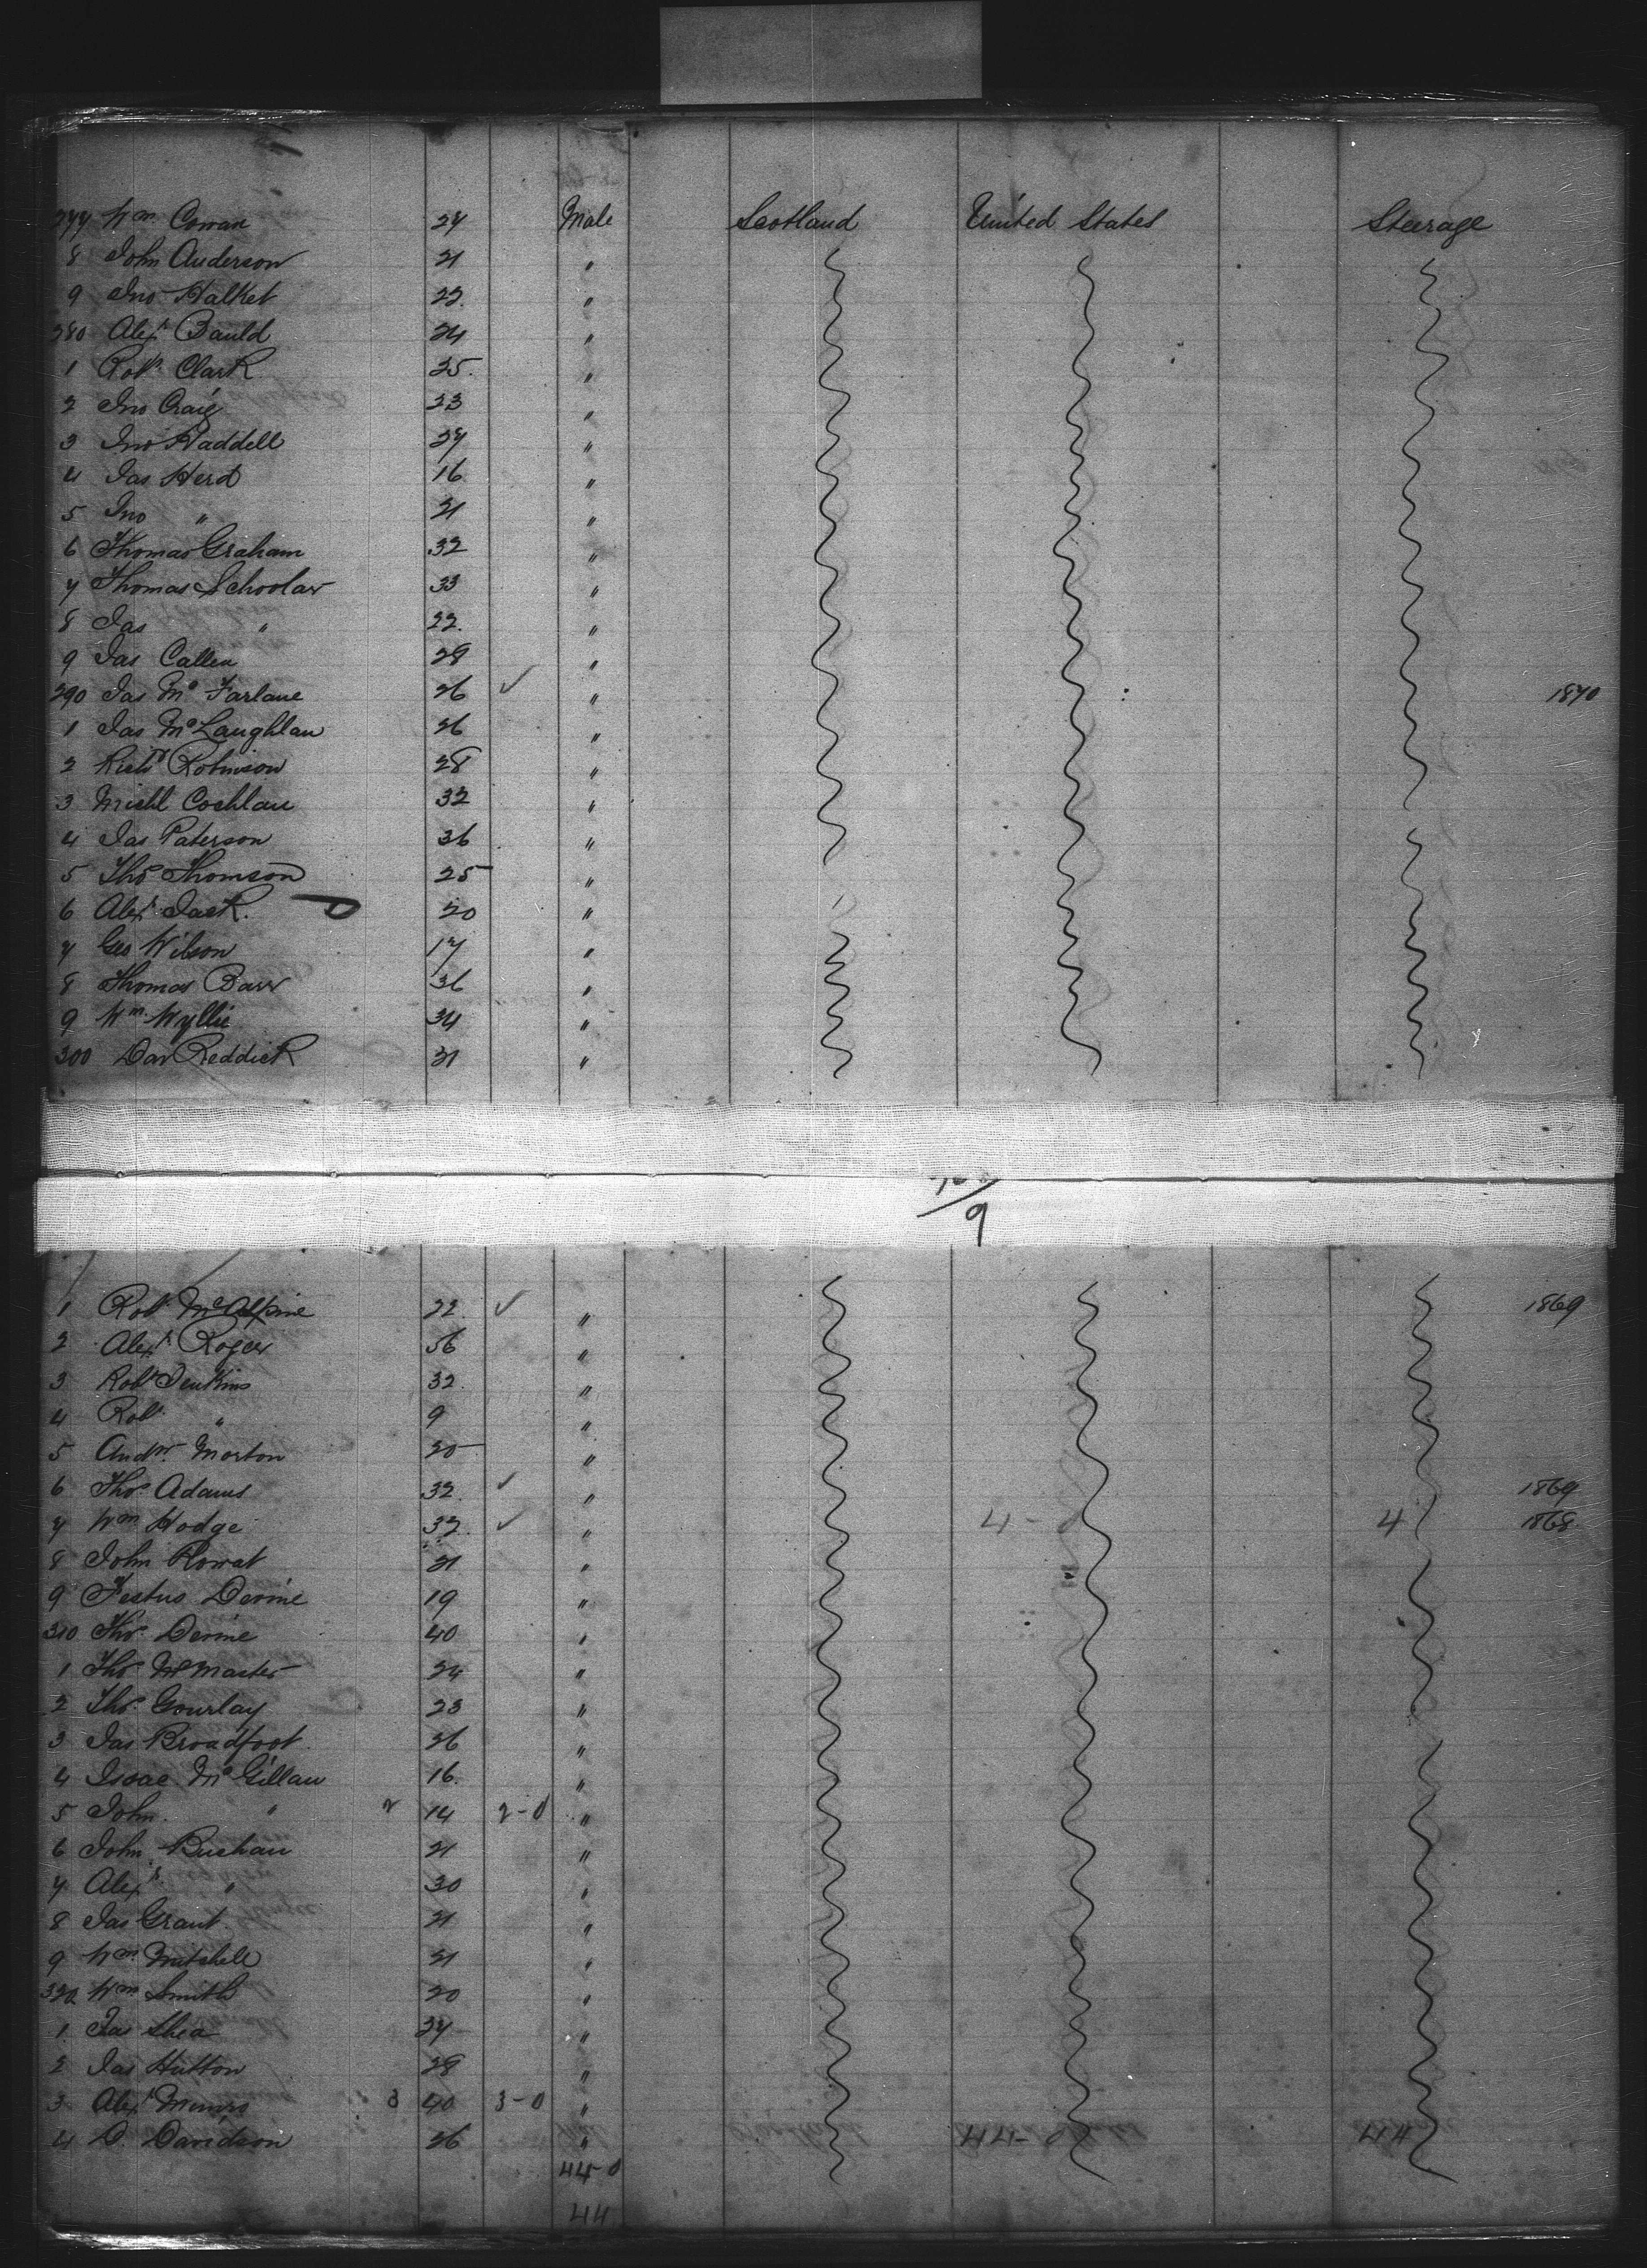 277 Wm Cowan 27 Male Scotland United States Steerage
8 John Anderson 21 "
9 Jno Halket 22 "
280 Alexr Bauld 24 "
1 Robt Clark 25 "
2 Jno Craig 23 "
3 Jno Waddell 27 "
4 Jas Herd 16 "
5 Jno " 21 "
6 Thomas Graham 32 "
7 Thomas Schoolar 33 "
8 Jas " 22 "
9 Jas Callen 28 "
290 Jas Mc Farlane 26 ✓ " 1870
1 Jas McLaughlan 26 "
2 Richd Robinson 28 "
3 Michl Coghlan 32 "
4 Jas Paterson 36 "
5 Thos Thomson 25 "
6 Alexr Jack 20 "
7 Geo Wilson 17 "
8 Thomas Barr 36 "
9 Wm Wyllie 34 "
300 Dav Reddick 31 "
9
1 Robt McAlpine 22 ✓ " 1869
2 Alexr Roger 56 "
3 Robt Jenkins 32 "
4 Robt " 9 "
5 Andw Morton 20 "
6 Thos Adams 32 ✓ " 1869
7 Wm Hodge 32 ✓ " 4-0 4 1868
8 John Howat 21 "
9 Festus Devine 19 "
310 Thos Devine 40 "
1 Thos McMaster 24 "
2 Thos Gourlay 23 "
3 Jas Broadfoot 26 "
4 Isaac McGillan 16 "
5 John " 2 14 2-0 "
6 John Buchan 21 "
7 Alexr " 30 "
8 Jas Grant 21 "
9 Wm Mitchell 21 "
320 Wm Smith 20 "
1 Jas Shea 37 "
2 Jas Hutton 28 "
3 Alexr Munro 3 40 3-0 "
4 D. Davidson 26 " 44-0 44
44-0
44